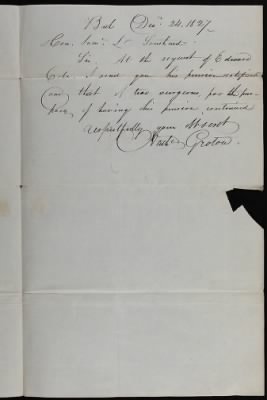 Bath Decr. 24. 1827.
Hon. Saml. L. Southard
Sir, At the request of Edward
I send you his pension certificate
and that of two surgeons for the pur-
pose of having his pension continued
respectfully your Obt. Servt
Groton